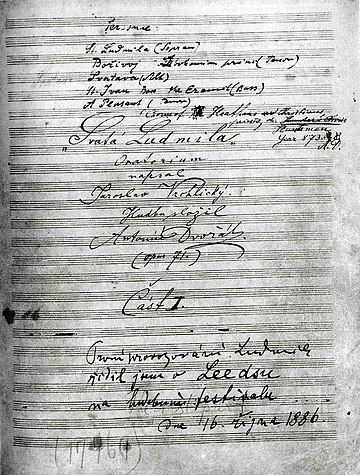 St. Ludmila (Sopran)
Bořivoj
Svatava (Alt)
St. Ivan the Eremit (Bass)
A Peasant (Tenor)
"Svatá Ludmila"
Oratorium
napsal
Jaroslav Vrchlický.
Hudbu složil
Antonín Dvořák
(opus 71.)
Část I.
První provozování Ludmily
řídil jsem v Leedsu
na hudebním festivalu
dne 16. října 1886.